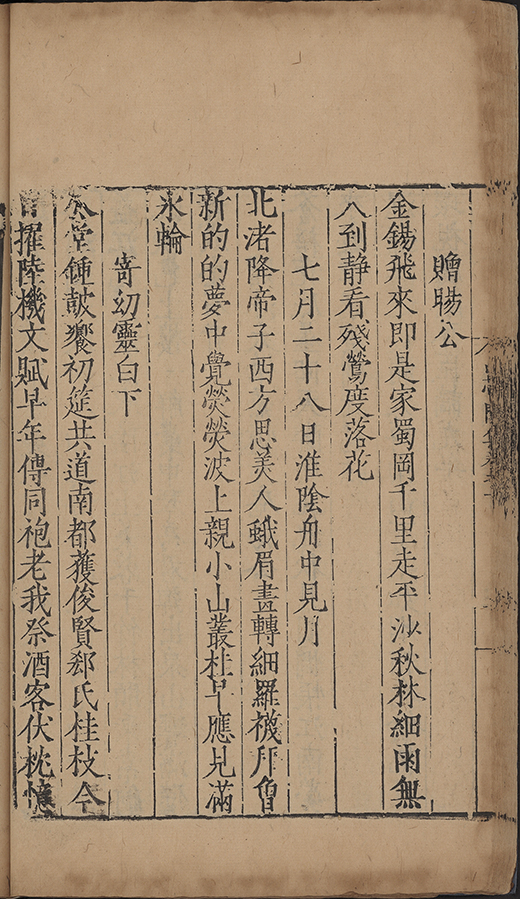 贈暘公
金錫飛來即是家蜀岡千里走平沙秋林細雨無
人到靜看殘鶯度落花
七月二十八日淮陰舟中見月
北渚降帝子西方思美人蛾眉盡轉細羅襪月曾
新的的夢中覺熒熒波上親小山叢桂早應見滿
氷輪
寄幻靈白下
公堂鍾皷饗初筵共道南都獲俊賢郄氏桂枝今
日擢陸機文賦早年傳同袍老我祭酒客伏枕憶